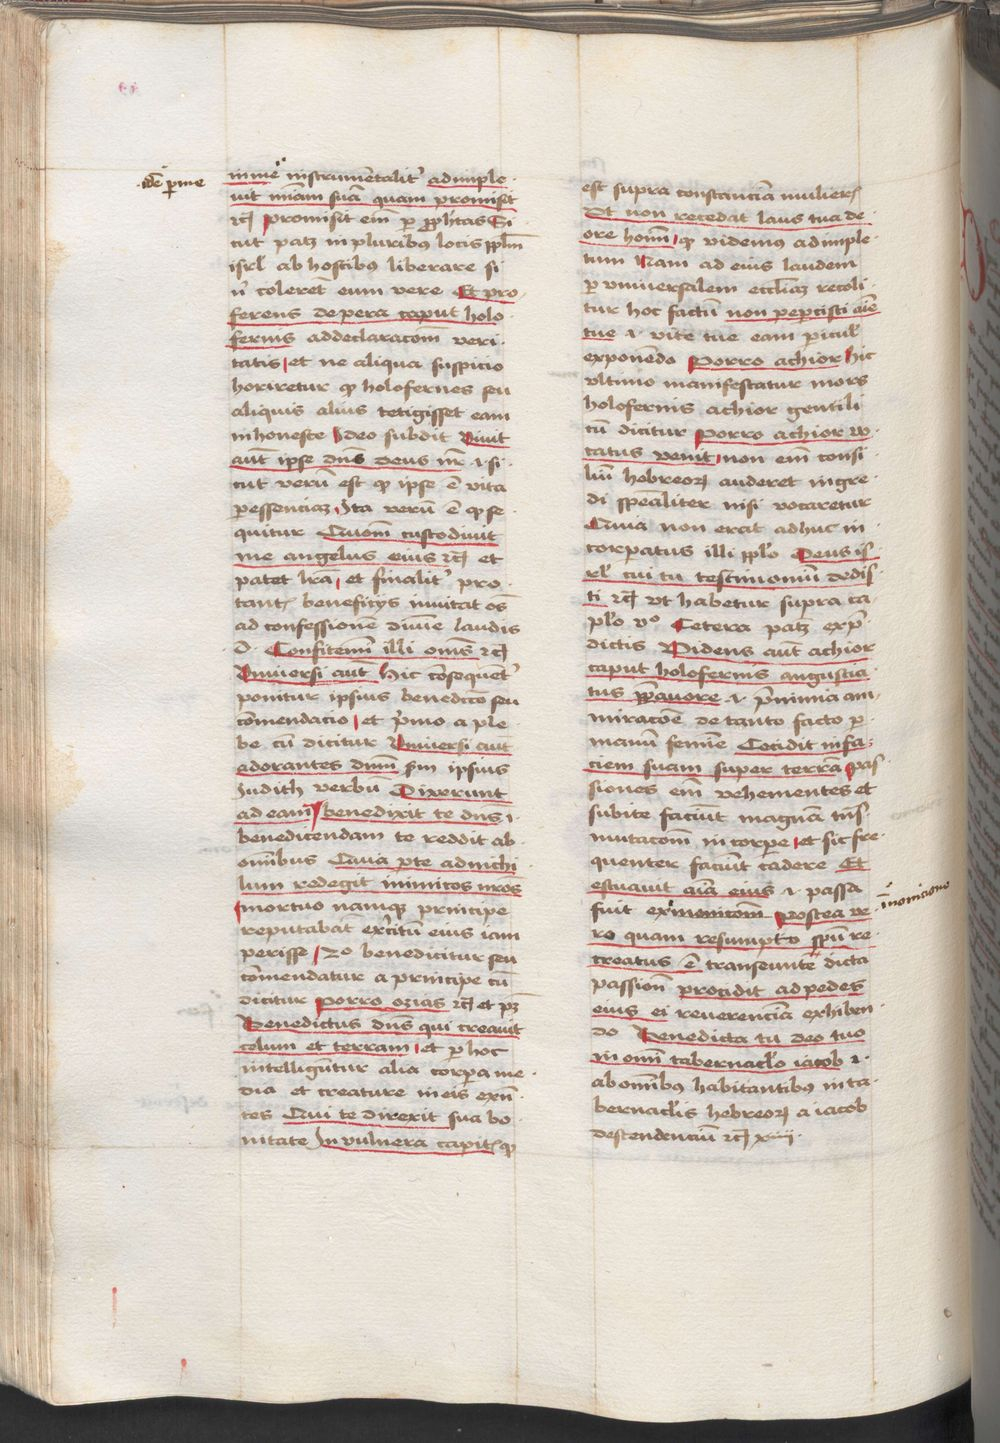 ·idē ꝑ me
in me instrumētalitʼ adimple·
uit mīam suā quam promisit
⁊cꝫ Promisit em̄ ꝑ ꝓphētas Si
cut patꝫ in pluribus locis pplm̄
isrl̄ ab hostibus liberare si
coleret eum vere Et pro·
ferens de pera caput holo·
fernis ad declaracom̄ veri·
tatis et ne aliqua suspicio
horiretur ꝙ holofernes seu
aliquis alius tetigisset eam
inhoneste Ideo subdit Viuit
aut̄ ipse dn̄s deus nr̄ ·i· si·
cut verū est ꝙ ipse ē vita
ꝑ essenciaꝫ Ita verū ē ꝙ se·
quitur Quom̄ custodiuit
me angelus eius ⁊cꝫ et
patet lr̄a et finalitʼ pro·
tant beneficijs inuitat os̄
ad confessionē diuine laudis
d· Confitemi illi om̄s ⁊cꝫ
Vniuersi aut̄ Hic cōsequētʼ
ponitur ipsius benedcc̄o seu
cōmendacio et pʼmo a ple·
be cū dicitur Vniuersi aut̄
adorantes dnm̄ scd̄m ipsius
Judith verbū Dixerunt
ad eam benedixit te dn̄s ·i·
benedicendam te reddit ab
omībus Quia ꝑ te ad nichi
lum redegit inimicos nr̄os
mortuo namqꝫ principe
reputabāt exʼcitū eius iam
perisse 2o benedicitur seu
cōmendatur a principe cū
dicitur Porro ozias ⁊cꝫ et pꝫ
Benedictus dn̄s qui creauit
celum et terram et ꝑ hoc
intelligūtur alia corpora me·
dia et creature in eis exn̄·
tes Qui te direxit sua bo·
nitate In vulnera capitꝭ ꝙ
est supra constanciā mulierꝭ
Vt non recedat laus tua de·
ore homī ꝙ videmus adimple·
tum Nam ad eius laudem
ꝑ vniuersalem eccl̄iaꝫ recoli·
tur hoc factū non pepercisti aīe
tue ·i· vite tue eam pericul̄
exponēdo Porro achior Hic
vltimo manifestatur mors
holofernis achior gentili
cū dicitur Porro achior vo·
catus venit non em̄ consi·
liū hebreoꝝ auderet ingre·
di spēaliter nisi vocaretur
Quia non erat adhuc in·
corporatus illi pplo Deus is·
rl̄ cui tu testimoniū dedis·
ti ⁊cꝫ vt habetur supra ca·
plo vo Cetera patꝫ exp̄·
dictis Videns aut̄ achior
caput holofernis angustia·
tus p̄ pauore ·i· p̄ nimia am·
miracōe de tanto facto ꝑ
manū femine Cecidit in fa·
ciem suam super terrā pas·
siones em̄ vehementes et
subite faciūt magnā tn̄s·
mutacom̄ in corpore et sic fre·
quenter faciūt cadere Et
estuauit aīa eius ·i· passa
fuit Postea ve·
ro quam resumpto spū re·
creatus ē transeunte dicta
passion̄ procidit ad pedes
eius ei reuerenciā exhiben·
do Benedicta tu deo tuo
in omī tabernaclo iacob ·i·
ab omībus habitantibus in ta·
bernacl̄is hebreoꝝ a iacob
descendenciū ⁊cꝫ xiiij·